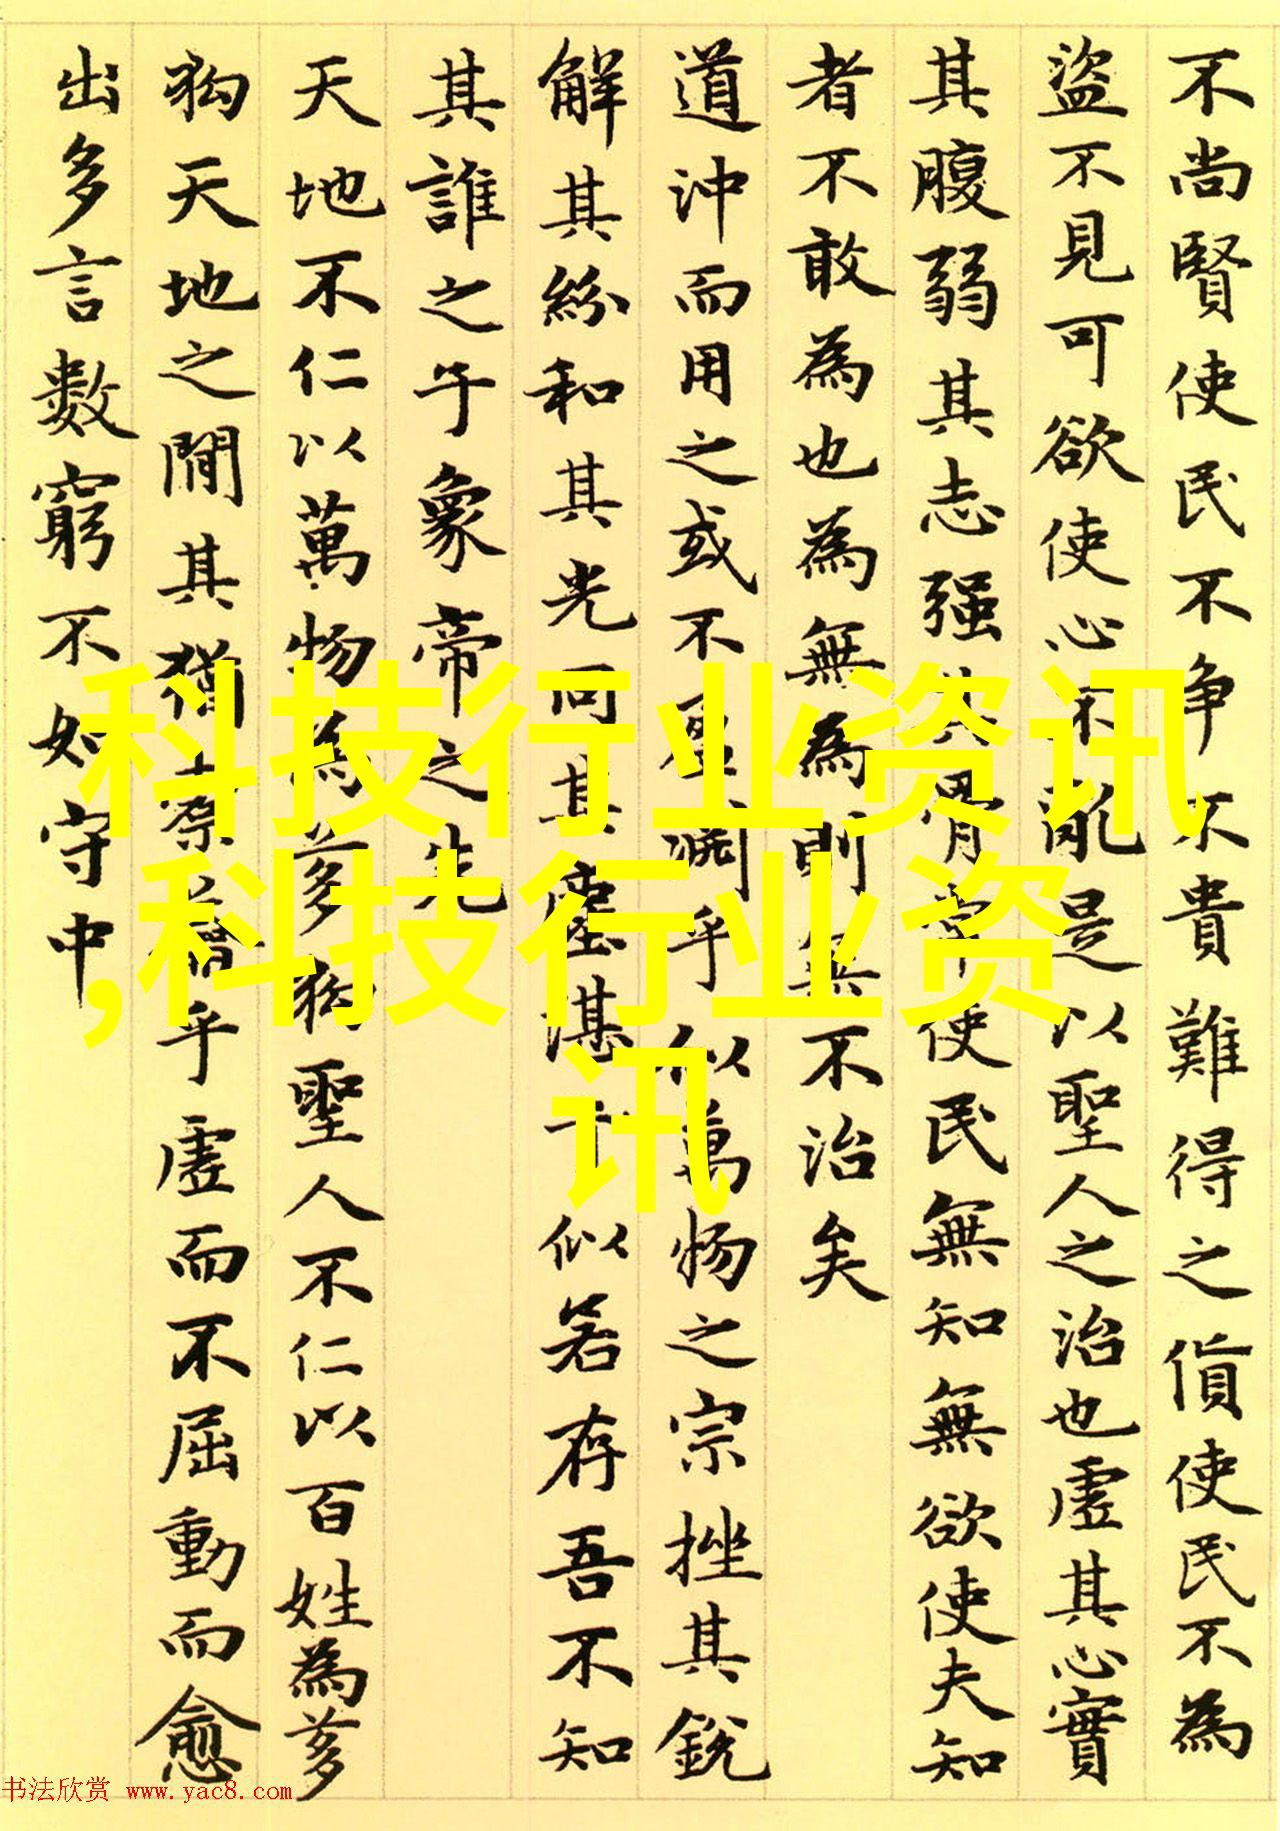 不尚賢使民不争不貴難得之貨使民不為
盜不見可欲使心不亂是以聖人之治也虛其心實
其腹弱其志强其骨常使民無知無欲使夫知
者不敢為也為無為則無不治矣
道沖而用之或不盈淵乎似萬物之宗挫其銳
解其紛和其光同其塵湛似若存吾不知
其誰之子象帝之先
天地不仁以萬物為芻狗聖人不仁以百姓為芻
狗天地之間其猶橐籥乎虛而不屈動而愈
出多言數窮不如守中
科技行业资讯
,科技行业资
讯
书法欣赏 www.yac8.com